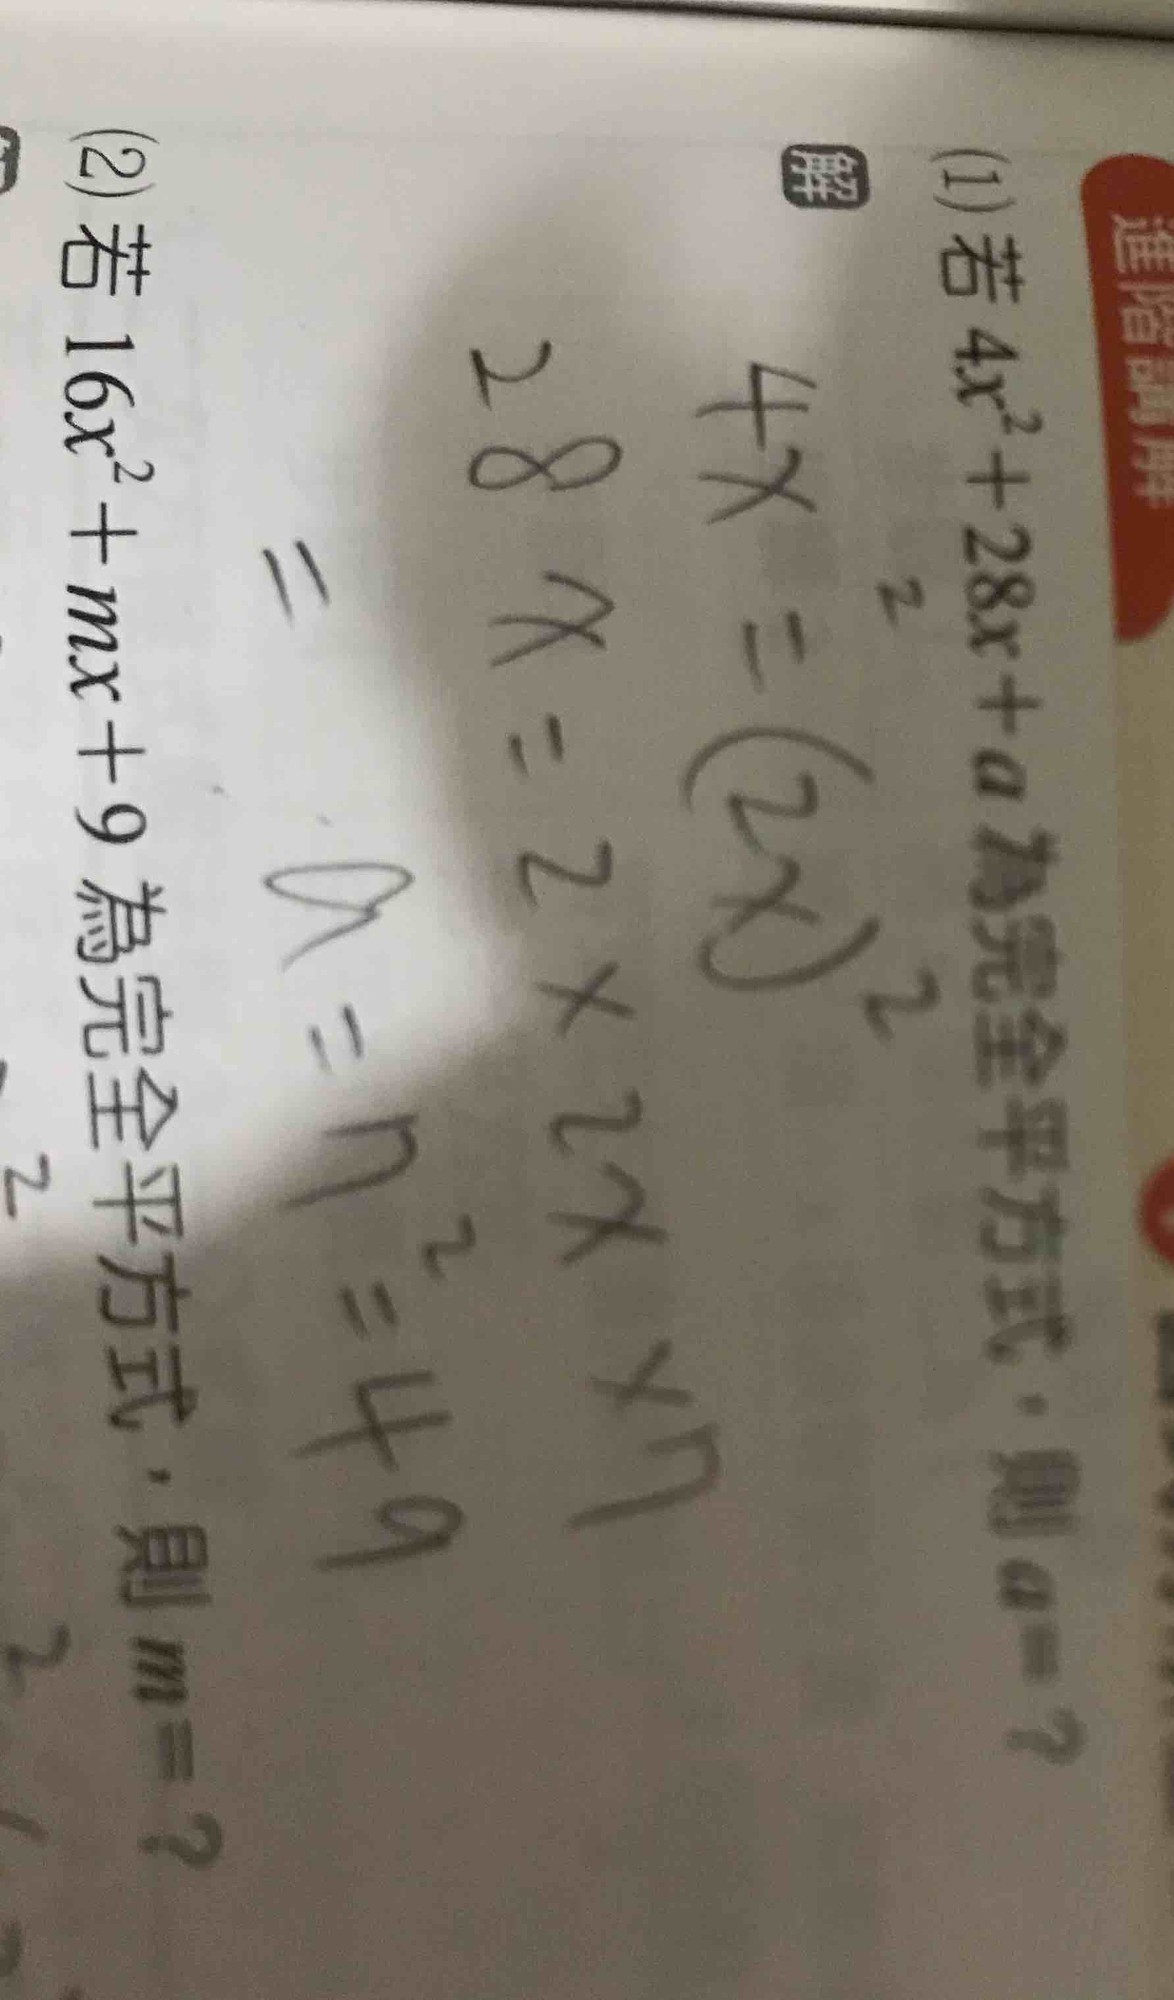 進階講解
(1) 若 4x²+28x+a 為完全平方式,則 a=?
解
4x²=(2x)²
28x=2×2x×7
= a=7²=49
(2) 若 16x²+mx+9 為完全平方式,則 m=?